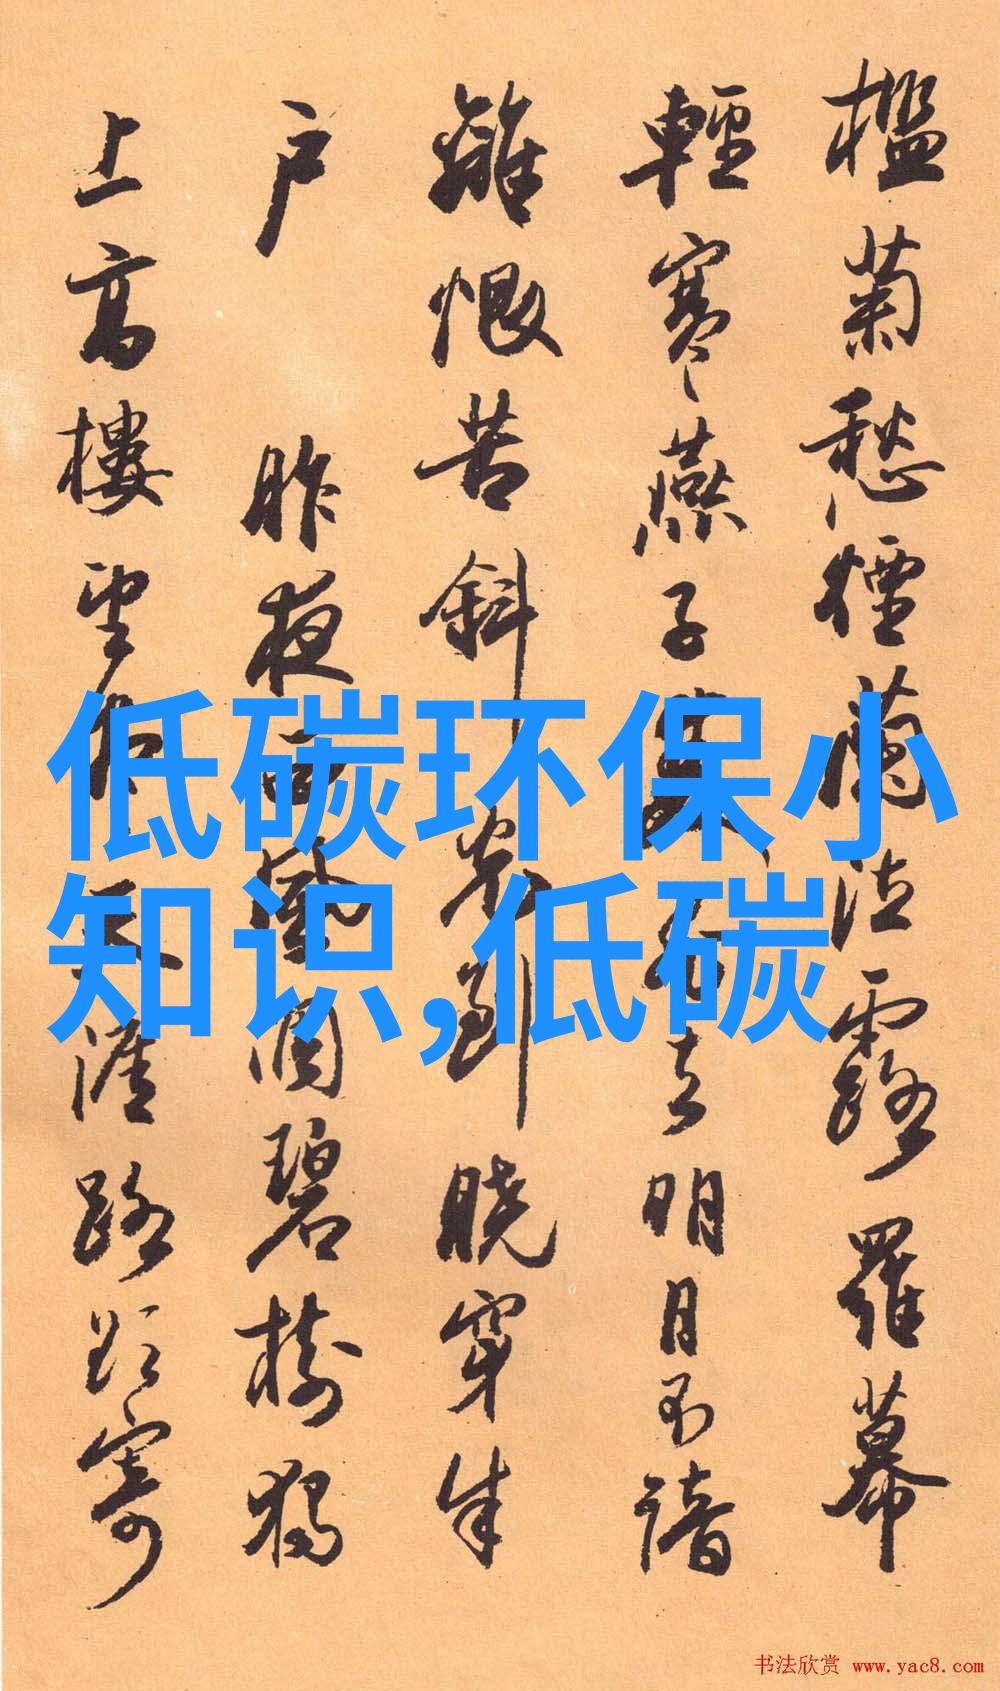 檻菊愁煙蘭泣露羅幕
輕寒燕子去明月不諳
離恨苦斜光到曉穿朱
户 昨夜西風凋碧樹獨
上高樓望天涯路欲寄
低碳环保小
知识,低碳
书法欣赏 www.yac8.com